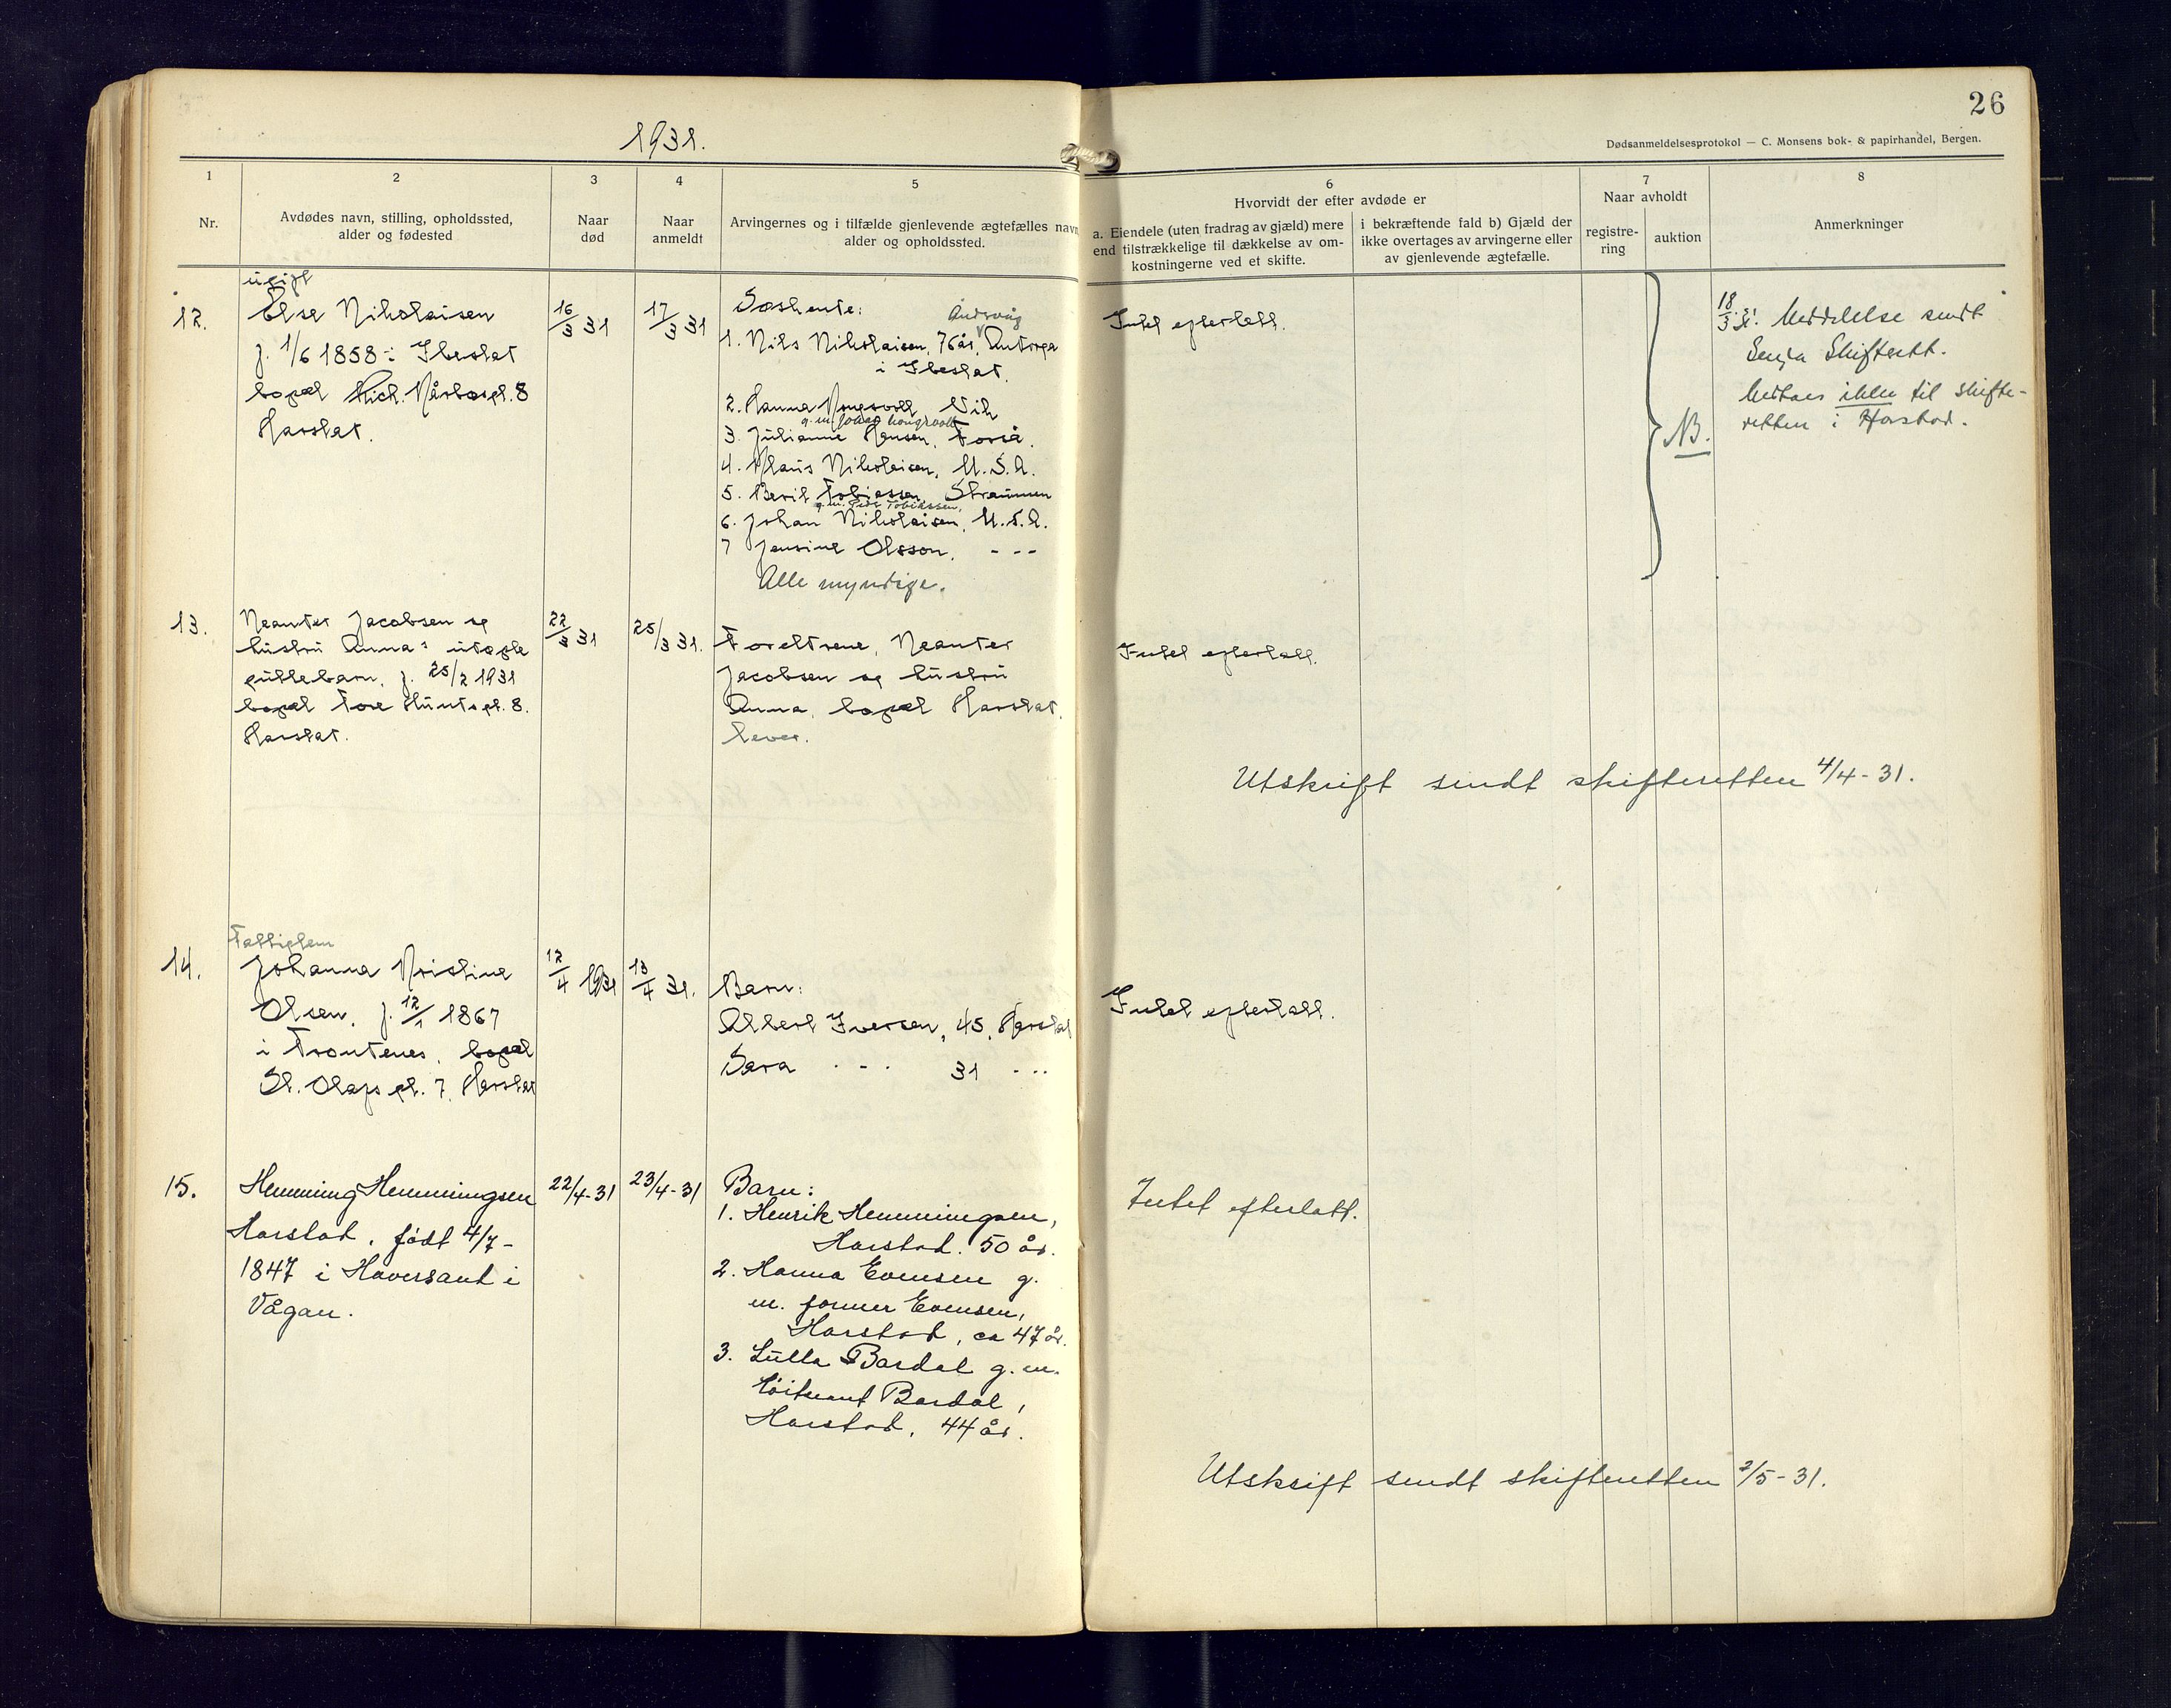 26
1931.
Dødsanmeldelsesprotokol — C. Monsens bok- & papirhandel, Bergen.
1
2
3
4
5
6
7
8
Nr.
Avdødes navn, stilling, opholdssted,
alder og fødested
Naar
død
Naar
anmeldt
Arvingernes og i tilfælde gjenlevende ægtefælles navn
alder og opholdssted.
Hvorvidt der efter avdøde er
a. Eiendele (uten fradrag av gjæld) mere
end tilstrækkelige til dækkelse av om-
kostningerne ved et skifte.
i bekræftende fald b) Gjæld der
ikke overtages av arvingerne eller
av gjenlevende ægtefælle.
Naar avholdt
registre-
ring
auktion
Anmerkninger
ugift
12.
Else Nikolaisen
f. 1/6 1858 i Ibestat
bopæl Rich. Kårbøsgt. 8
Harstat.
16/3 31
17/3 31
Søskente:
Åndsvåg
1. Nils Nikolaisen, 76 år, Antorja
i Ibestat.
2. Hanna Kongsvoll, Vik
g.m. Johan Kongsvoll
3. Julianne Hansen, Forså.
4. Klaus Nikolaisen, U.S.A.
5. Berit Tobiassen, Straumen
g.m. Peder Tobiassen,
6. Johan Nikolaisen, U.S.A.
7 Jensine Olsson, - - -
Alle myndige.
Intet efterlatt.
NB.
18/3.31. Meddelelse sendt
Senja Skifterett.
Medtaes ikke til skifte-
retten i Harstad.
13.
Neanter Jacobsen og
hustru Anna's utøpte
guttebarn, f. 25/2 1931
bopæl Tore Huntsgt. 8.
Harstat.
22/3 31
25/3 31.
Foreltrene, Neanter
Jacobsen og hustru
Anna, bopæl Harstat,
lever.
Intet efterlatt.
Utskrift sendt skifteretten 4/4-31.
Fattiglem
14.
Johanna Kristine
Olsen, f. 12/1 1867
i Trontenes, bopæl
St. Olafsgt. 7, Harstat
12/4 1931
13/4 31.
Barn:
Albert Iversen, 45, Harstat
Sara - - - 31 - - -
Intet efterlatt.
15.
Hemming Hemmingsen
Harstad, født 4/7-
1847 i Haversand i
Vågan.
22/4-31
23/4-31
Barn:
1. Henrik Hemmingsen,
Harstad. 50 år.
2. Hanna Evensen g.
m. former Evensen,
Harstad, ca 47 år.
3. Lulla Bardal g. m.
løitnant Bardal,
Harstad, 44 år.
Intet efterlatt.
Utskrift sendt skifteretten 2/5-31.